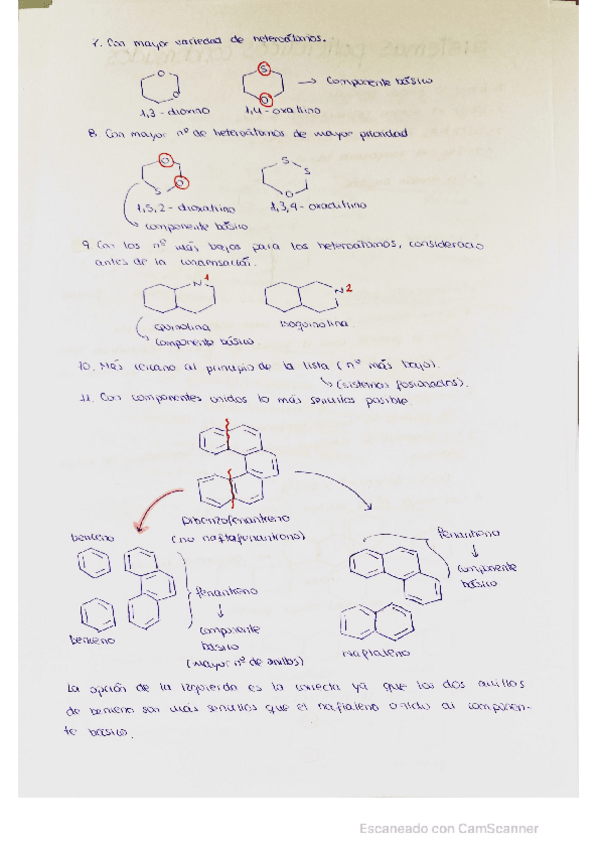 7. Con mayor variedad de heteroátomos.
O
O
S
O
→ Componente básico
1,3-dioxano
1,4-oxatiino
8. Con mayor nº de heteroátomos de mayor prioridad
O
O
S
S
S
O
1,5,2-dioxatiino
1,3,4-oxaditiino
componente básico
9. Con los nº más bajos para los heteroátomos, considerado
antes de la condensación.
N 1
N 2
quinolina
Isoquinolina
componente básico.
10. Más cercano al principio de la lista (nº más bajo).
(sistemas fusionados).
11. Con componentes unidos lo más sencillos posible.
Dibenzofenantreno
(no naftofenantreno)
benceno
benceno
fenantreno
↓
componente
básico
(Mayor nº de anillos)
fenantreno
↓
componente
básico
Naftaleno
La opción de la izquierda es la correcta ya que los dos anillos
de benceno son más sencillos que el naftaleno unido al componen-
te básico.
Escaneado con CamScanner